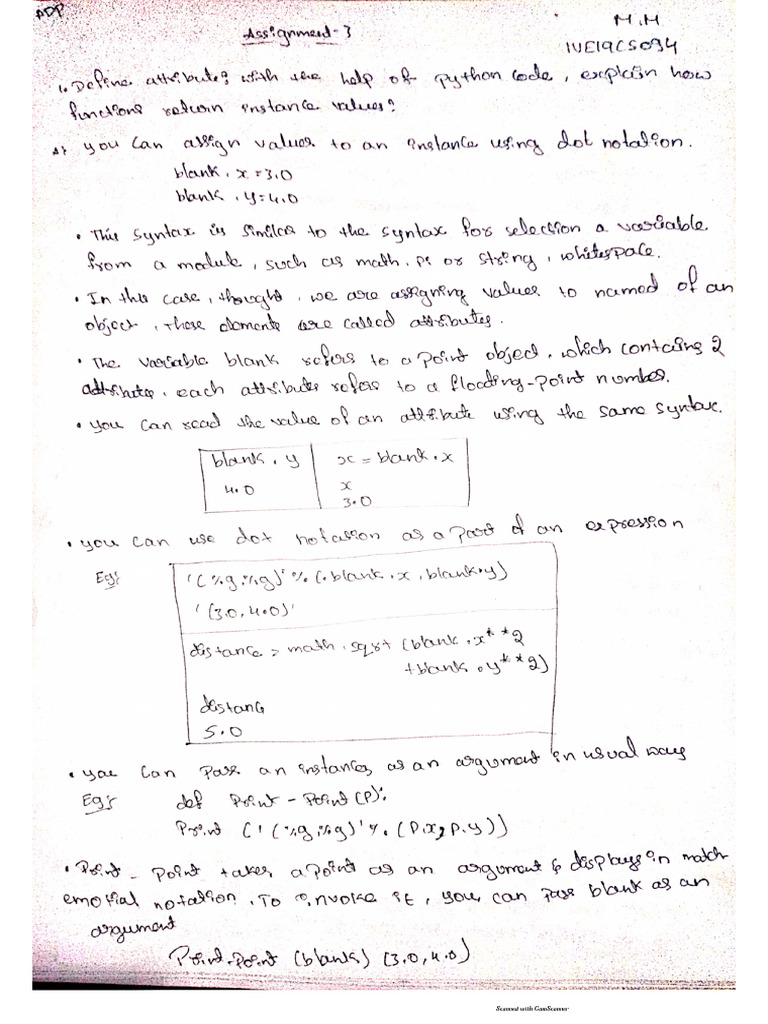 ADP
Assignment-3
M.M
1VE19CS094
1. Define attributes with the help of python code, explain how
functions return instance values?
A: you can assign values to an instance using dot notation.
blank. x = 3.0
blank. y = 4.0
• This syntax is similar to the syntax for selection a variable
from a module, such as math. pi or string, whitespace.
• In this case, thought, we are assigning values to named of an
object, these elements are called attributes.
• The variable blank refers to a point object, which contains 2
attributes, each attribute refers to a floating-point number.
• you can read the value of an attribute using the same syntax.
blank. y x = blank. x
4.0 x
3.0
• you can use dot notation as a part of an expression
Eg:
'(%g,%g)' % (.blank.x, blank.y)
'(3.0, 4.0)'
distance = math.sqrt (blank.x**2
+blank.y**2)
distanc
5.0
• you can pass an instances as an argument in usual ways
Eg: def Print-Point (P):
Print ('(%g,%g)' % (P.x, P.y))
• Print-Point takes a point as an argument & displays in math
emotial notation. To invoke it, you can pass blank as an
argument
Print-Point (blank) (3.0, 4.0)
Scanned with CamScanner